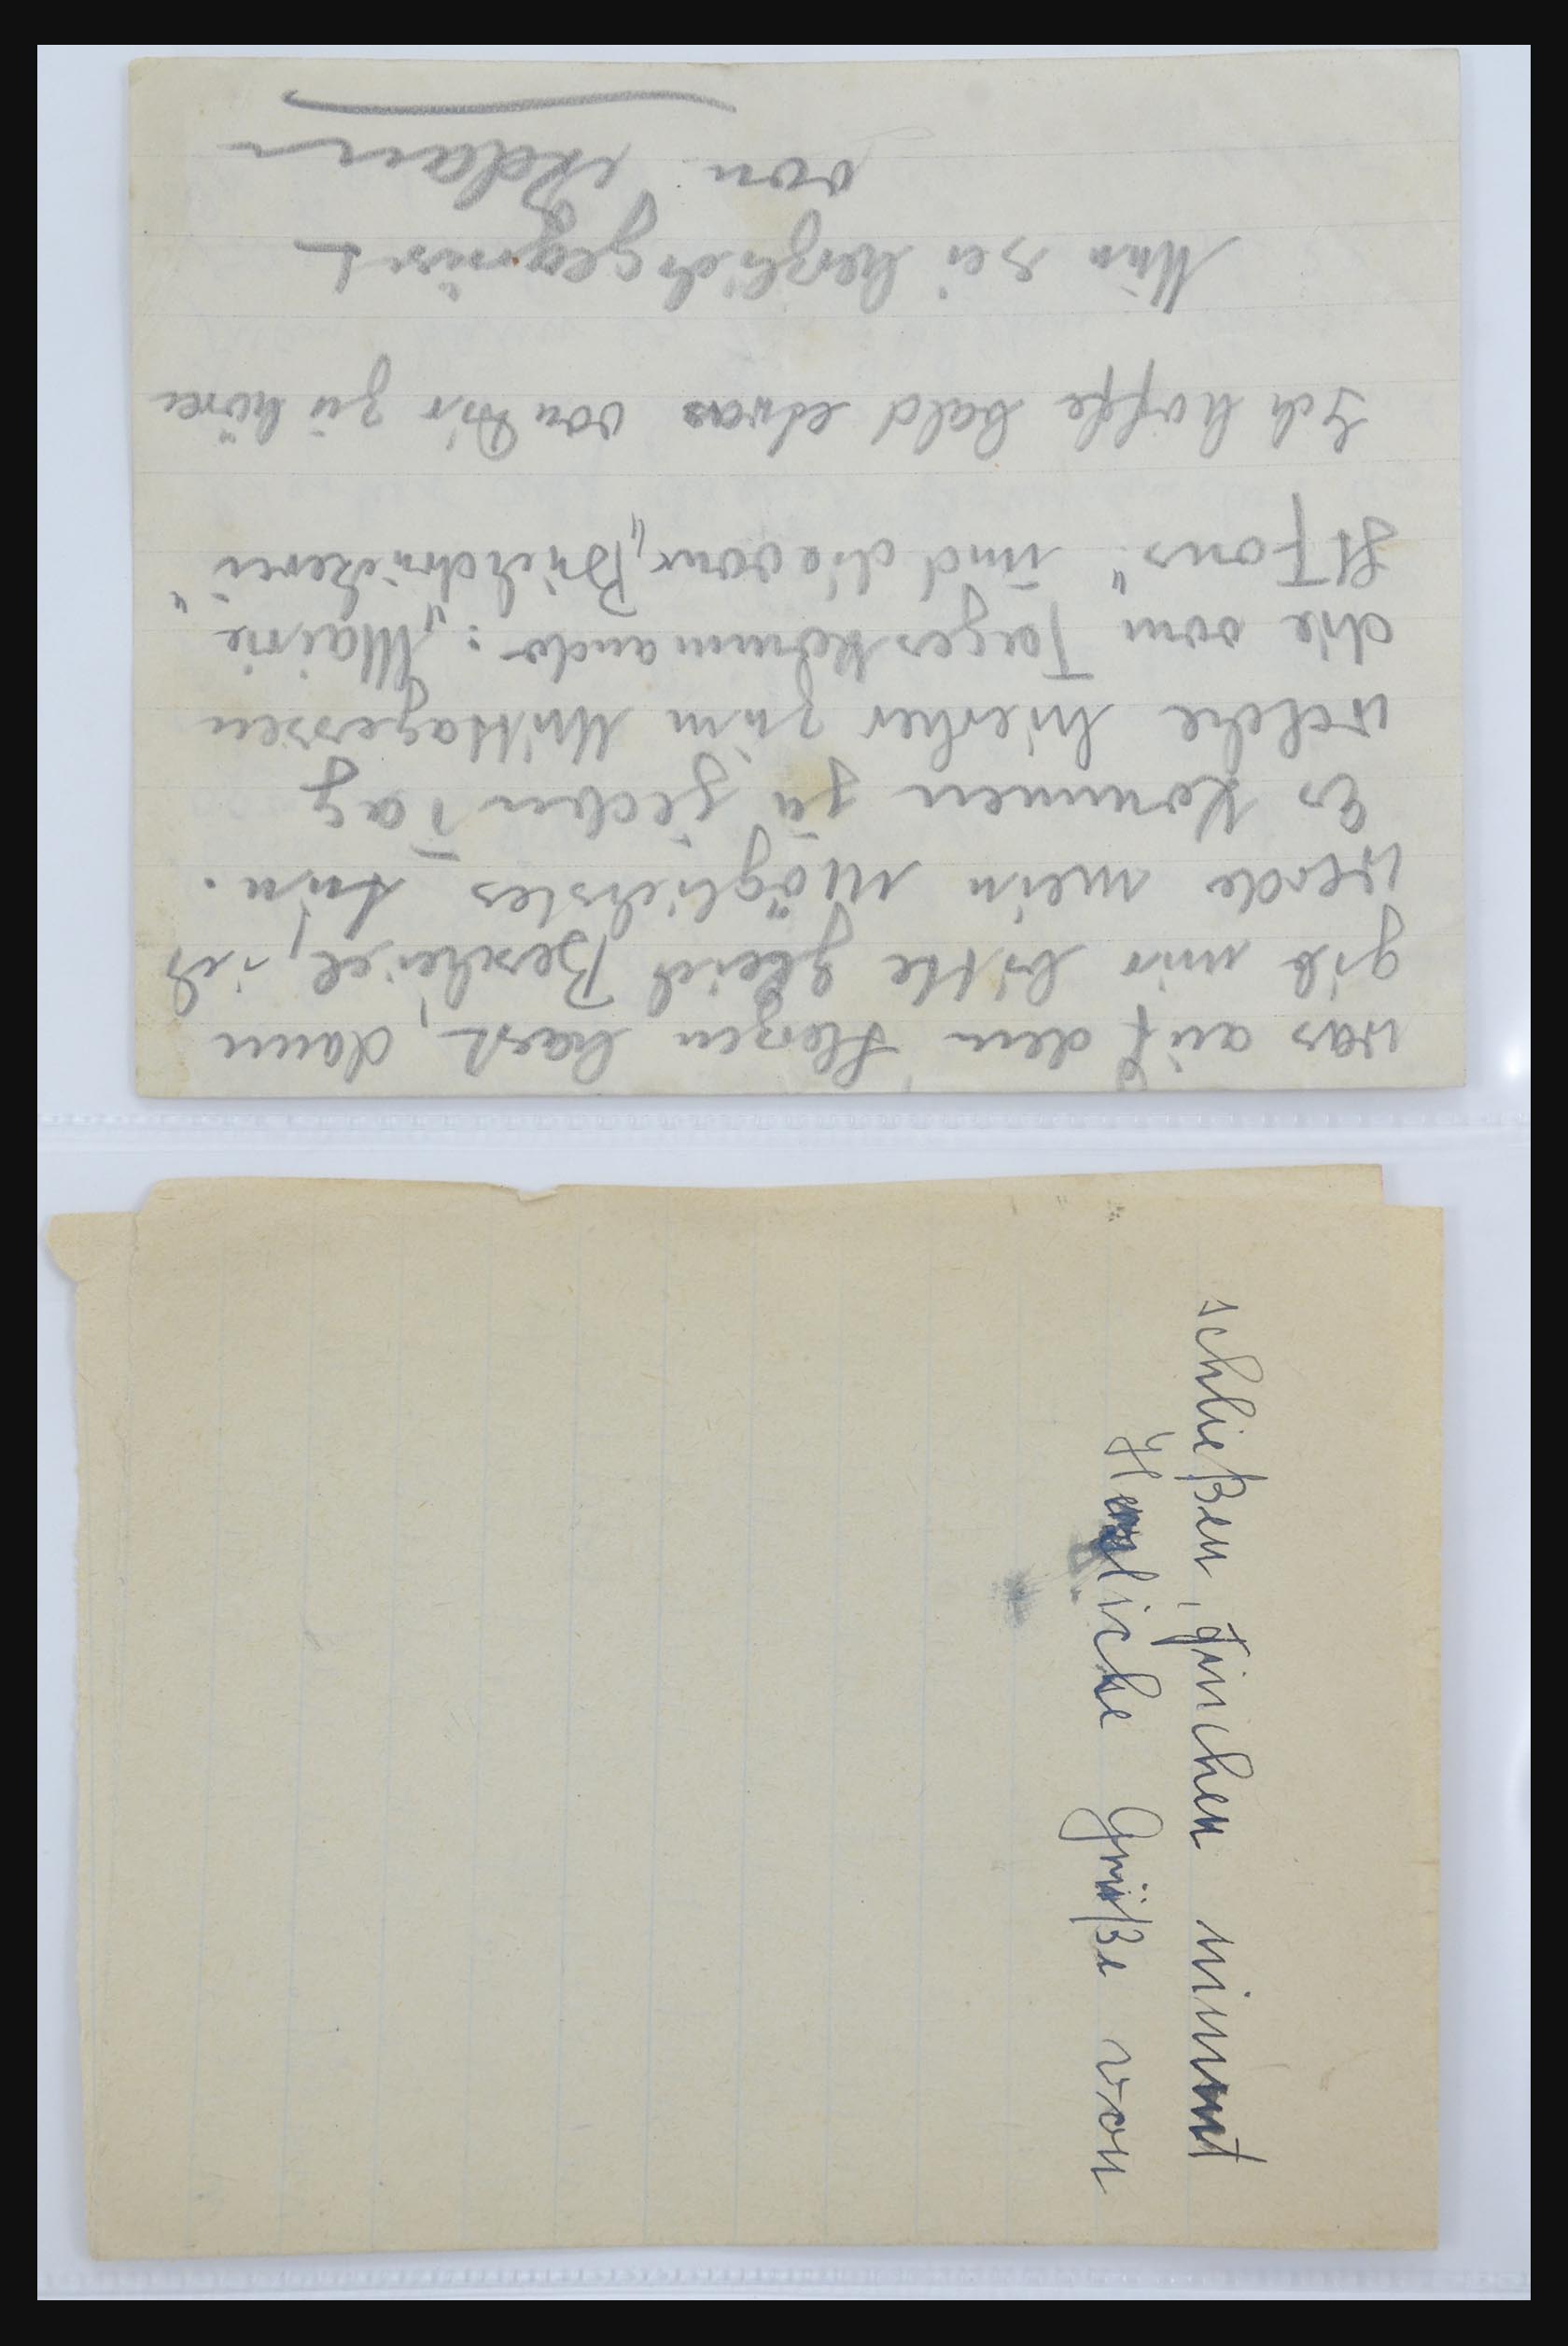 was auf dem Herzen hast, dann
gib mir bitte gleich Bescheid, ich
werde mein möglichstes tun.
Es kommen ja jeden Tag
welche hierher zum Mittagessen
die vom Tageskommando: „Mairie
St Fons" und die vom „Buchdrückerei"
Ich hoffe bald etwas von Dir zu hören
Nun sei herzlich gegrüsst
von Adam
schließen, Finchen nimmt
Herzliche Grüße von